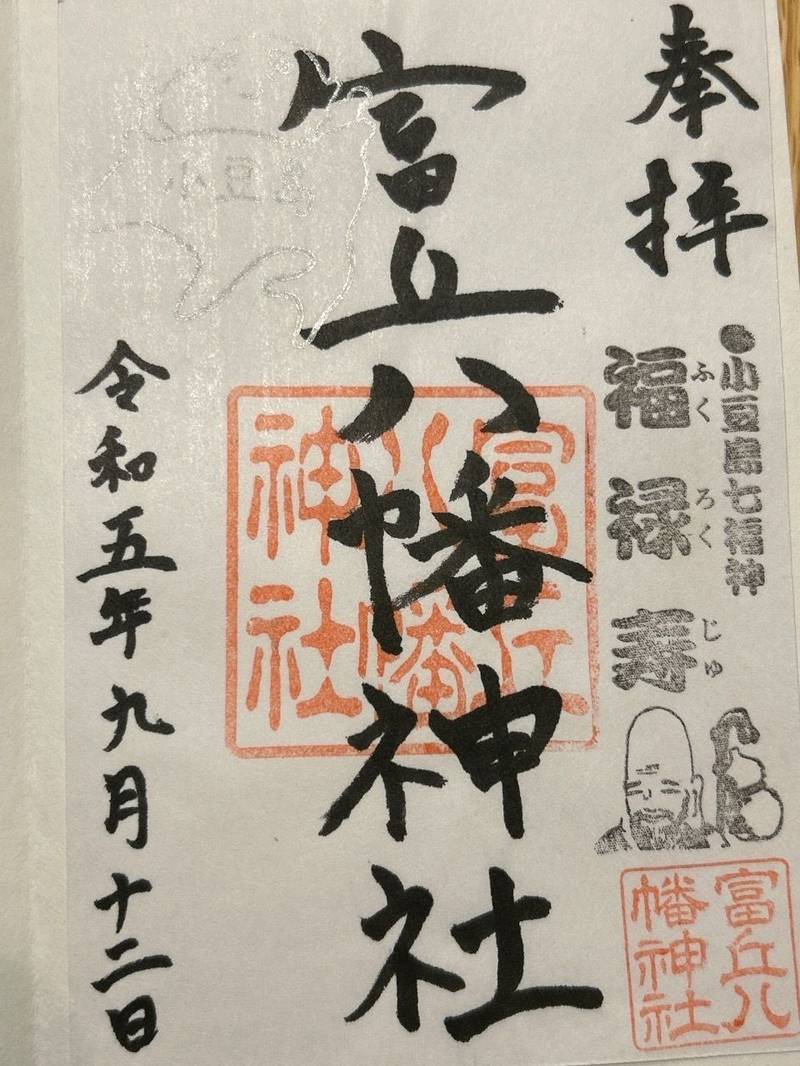 奉拝
●小豆島七福神
福禄寿
ふくろくじゅ
富丘八幡神社
富丘八幡神社
富丘八幡神社
小豆島
令和五年九月十二日